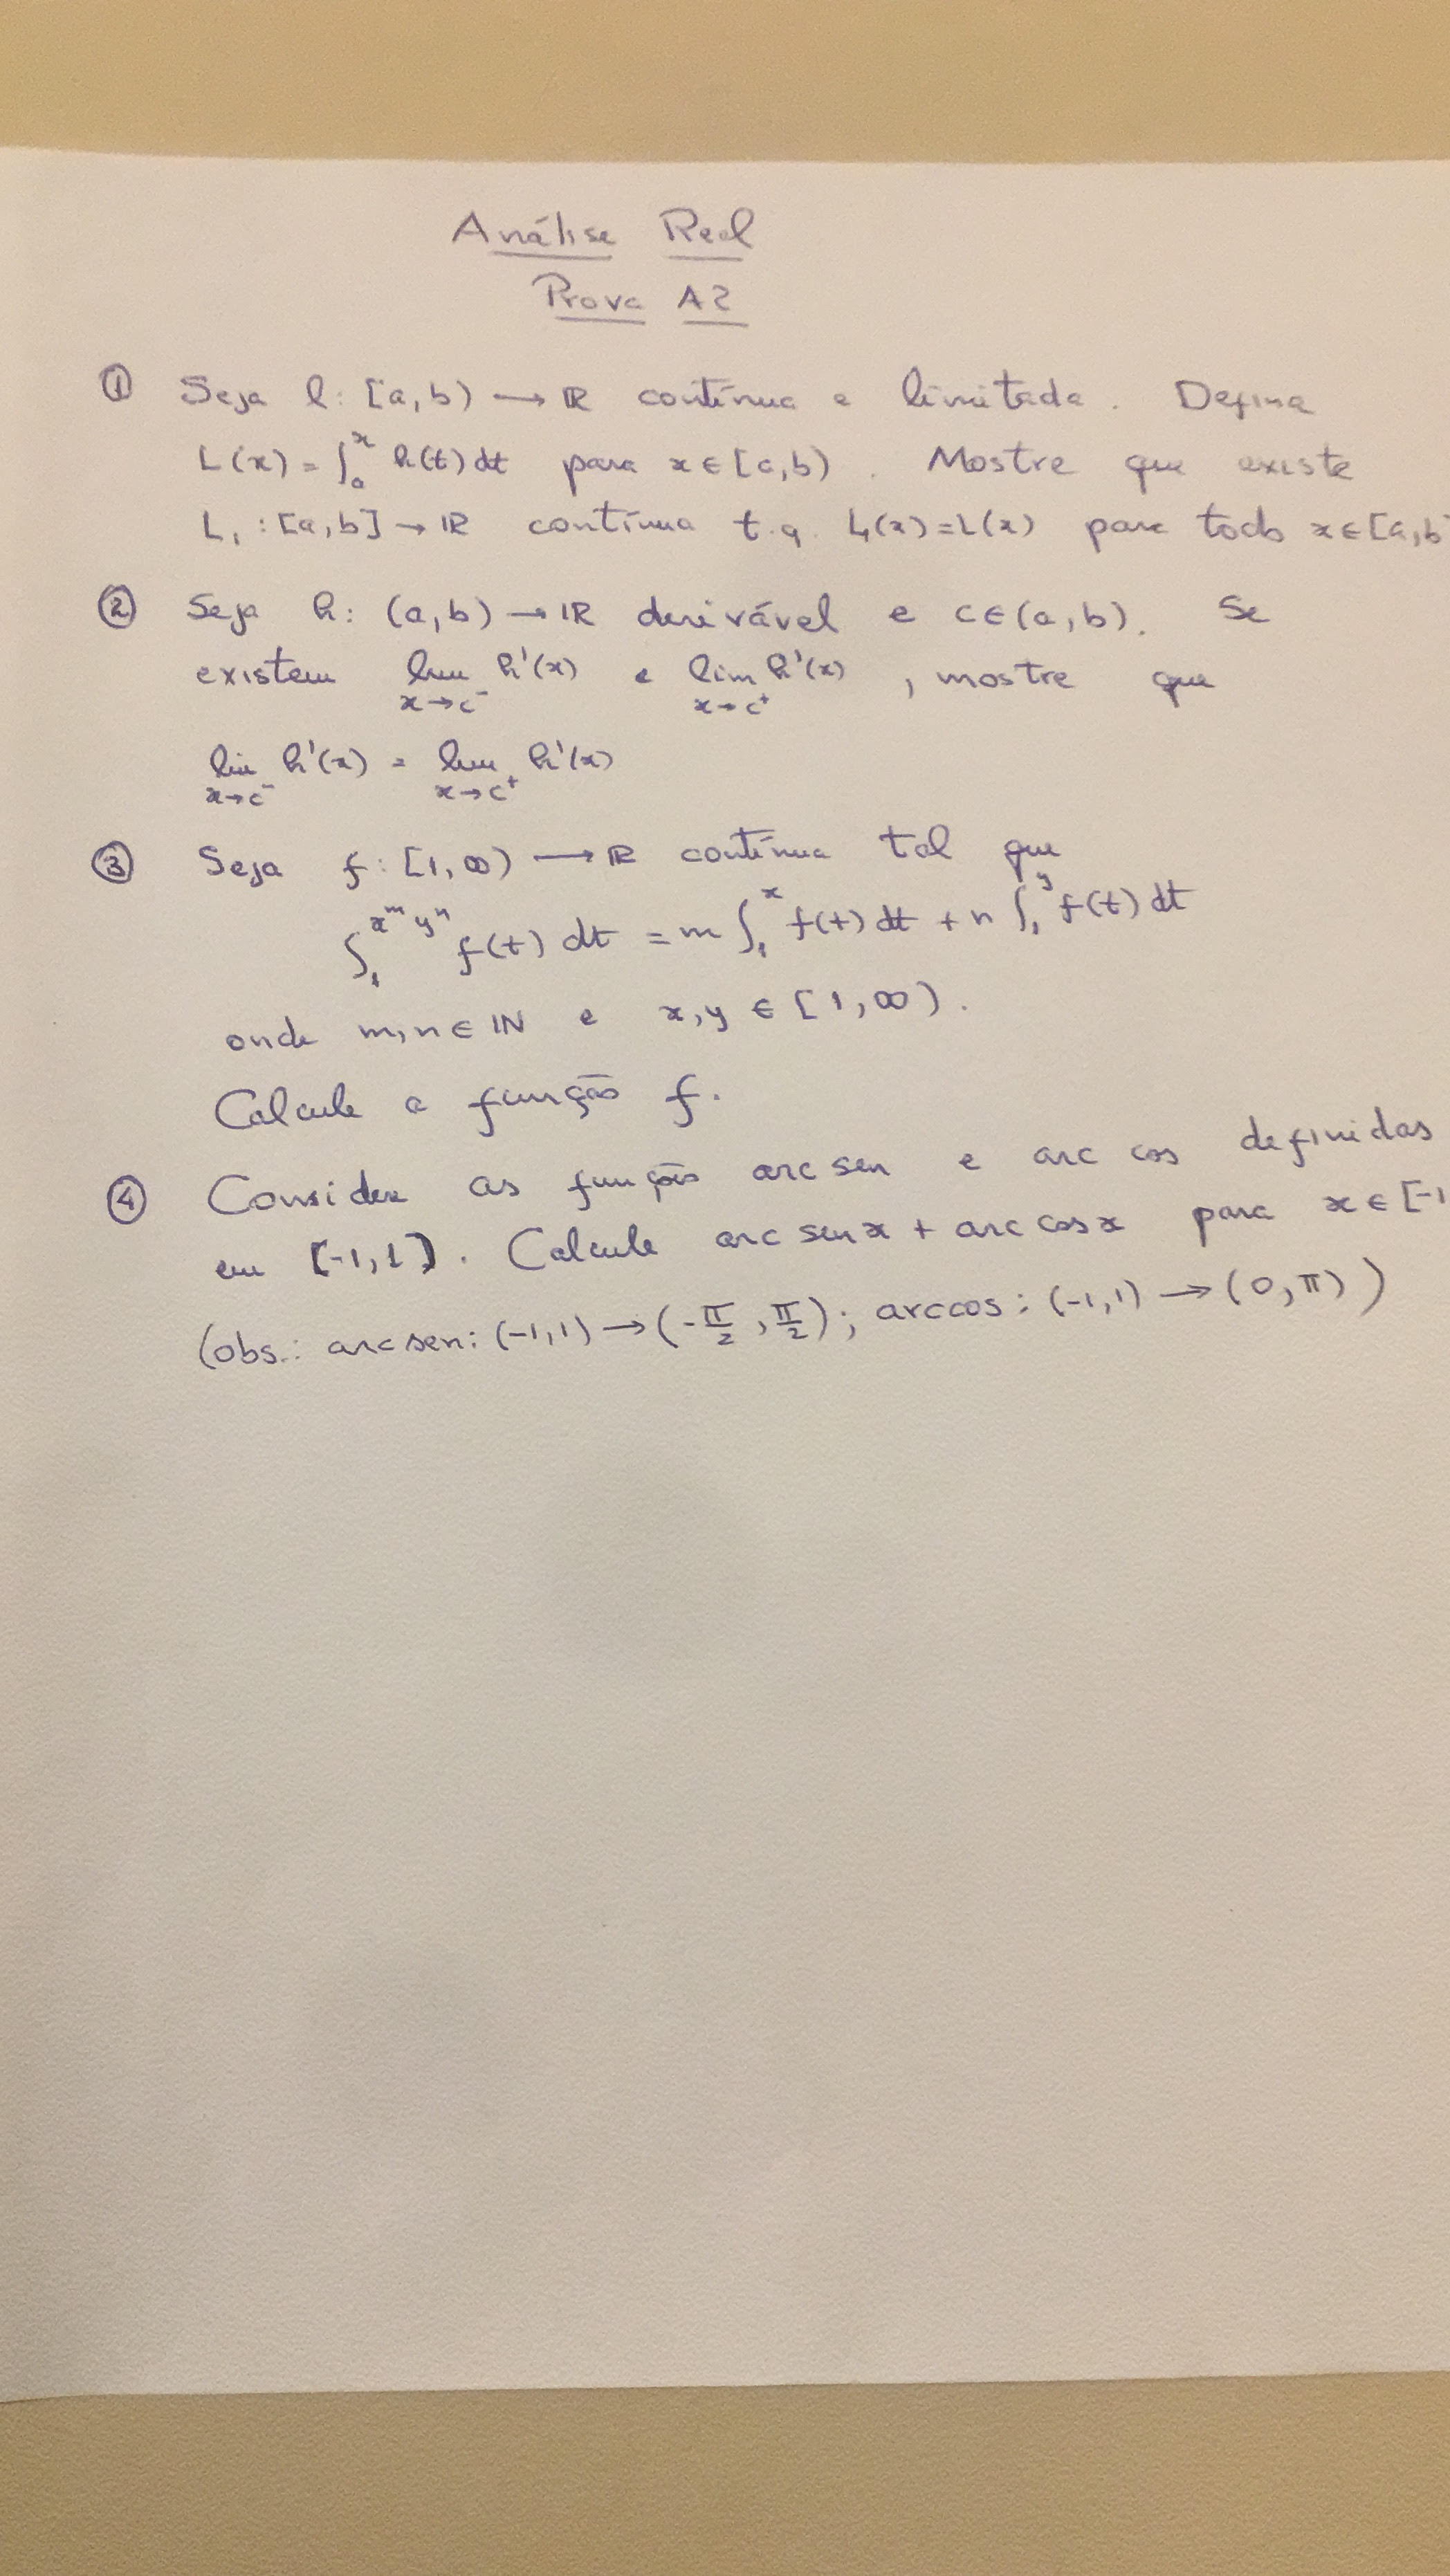 Análise Real
Prova A2
① Seja l: [a,b) → ℝ contínua e limitada. Defina
L(x) = ∫ₐˣ h(t) dt para x ∈ [a,b). Mostre que existe
L₁ : [a,b] → ℝ contínua t.q. L₁(x)=L(x) para todo x ∈ [a,b
② Seja h: (a,b) → ℝ derivável e c ∈ (a,b). Se
existem lim h'(x) e lim h'(x), mostre que
x→c⁻ x→c⁺
lim h'(x) = lim h'(x)
x→c⁻ x→c⁺
③ Seja f: [1,∞) → ℝ contínua tal que
∫₁^{xᵐyⁿ} f(t) dt = m ∫₁ˣ f(t) dt + n ∫₁ʸ f(t) dt
onde m,n ∈ ℕ e x,y ∈ [1,∞).
Calcule a função f.
④ Considere as funções arc sen e arc cos definidas
em [-1,1]. Calcule arc sen x + arc cos x para x ∈ [-1
(obs.: arc sen: (-1,1) → (-π/2, π/2); arccos: (-1,1) → (0,π))